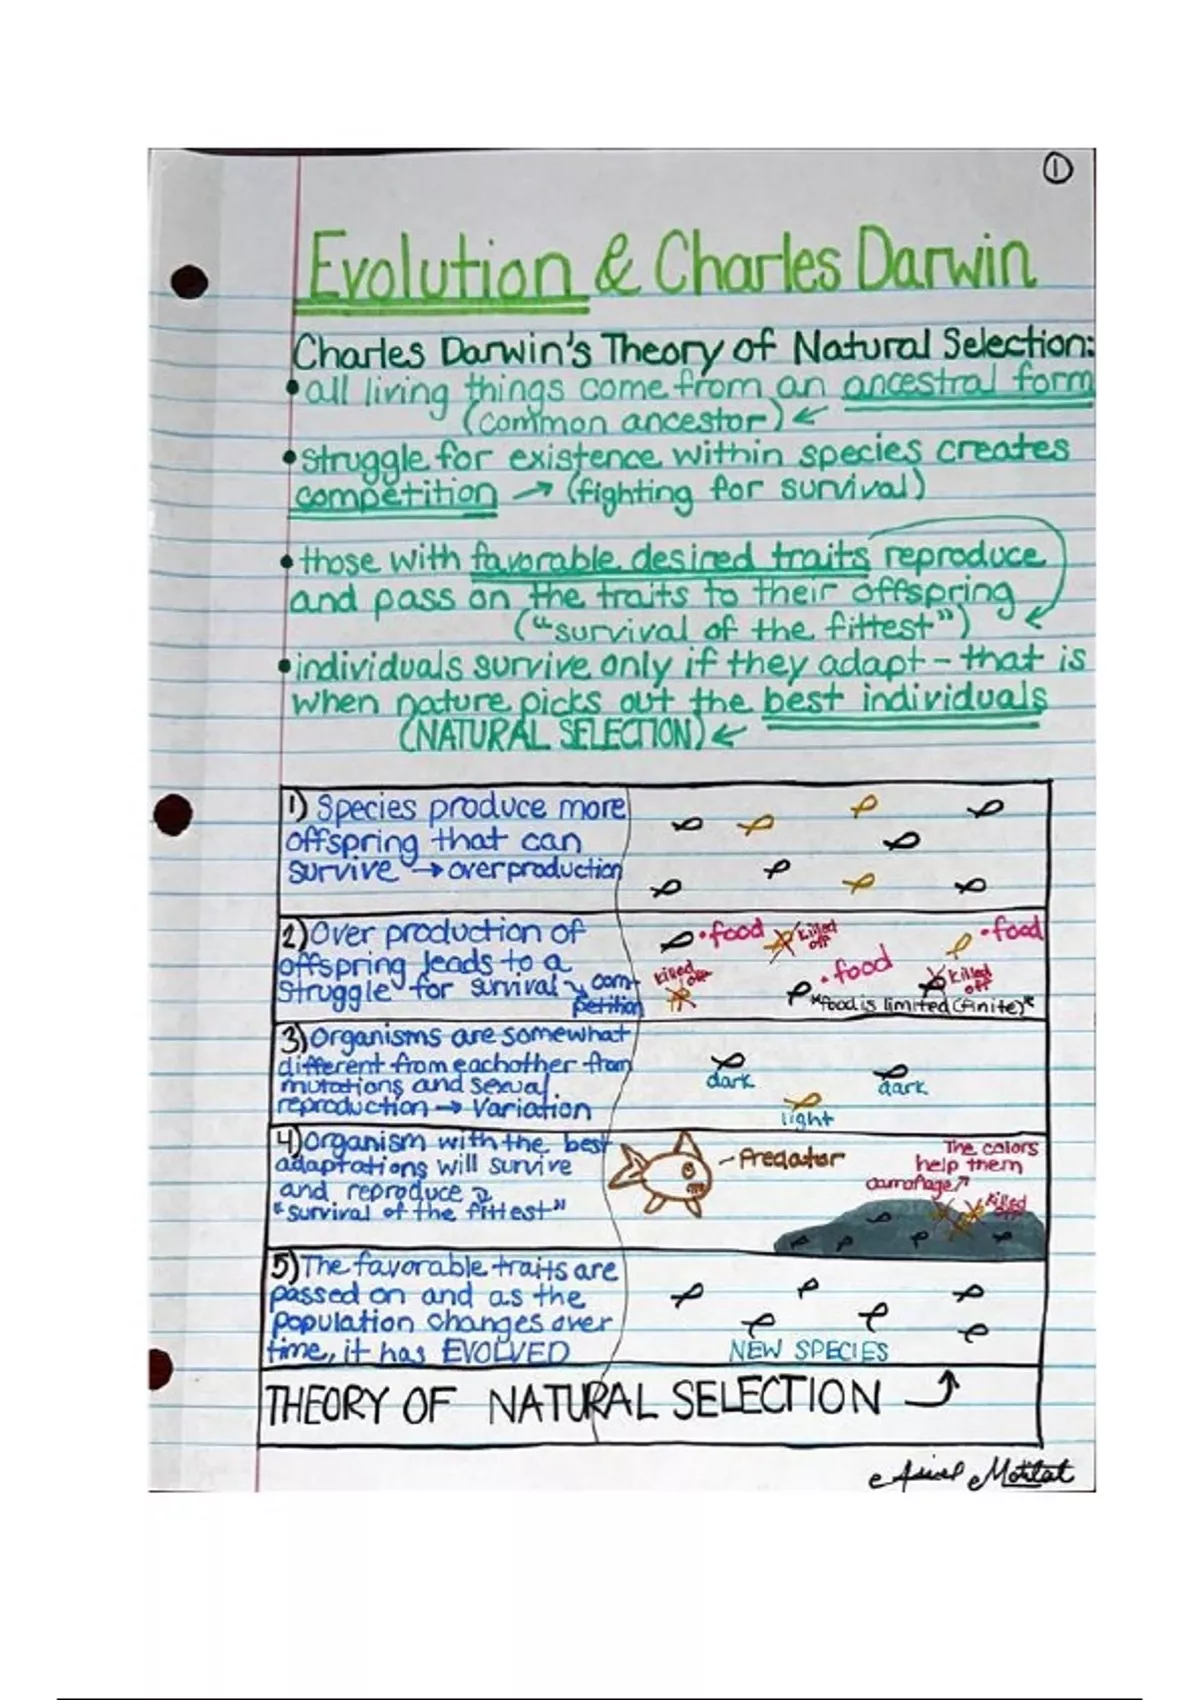 ①
Evolution & Charles Darwin
Charles Darwin's Theory of Natural Selection:
• all living things come from an ancestral form
(common ancestor) ↙
• struggle for existence within species creates
competition → (fighting for survival)
• those with favorable desired traits reproduce
and pass on the traits to their offspring
("survival of the fittest")
• individuals survive only if they adapt - that is
when nature picks out the best individuals
(NATURAL SELECTION) ↙
1) Species produce more
offspring that can
survive → overproduction
2) Over production of
offspring leads to a
struggle for survival ↘ com-
petition
•food
killed
off
•food
killed
off
•food
killed
off
*food is limited (finite)*
3) Organisms are somewhat
different from eachother from
mutations and sexual
reproduction → Variation
dark
dark
light
4) Organism with the best
adaptations will survive
and reproduce
"survival of the fittest"
Predator
The colors
help them
camoflage
killed
off
5) The favorable traits are
passed on and as the
population changes over
time, it has EVOLVED
NEW SPECIES
THEORY OF NATURAL SELECTION